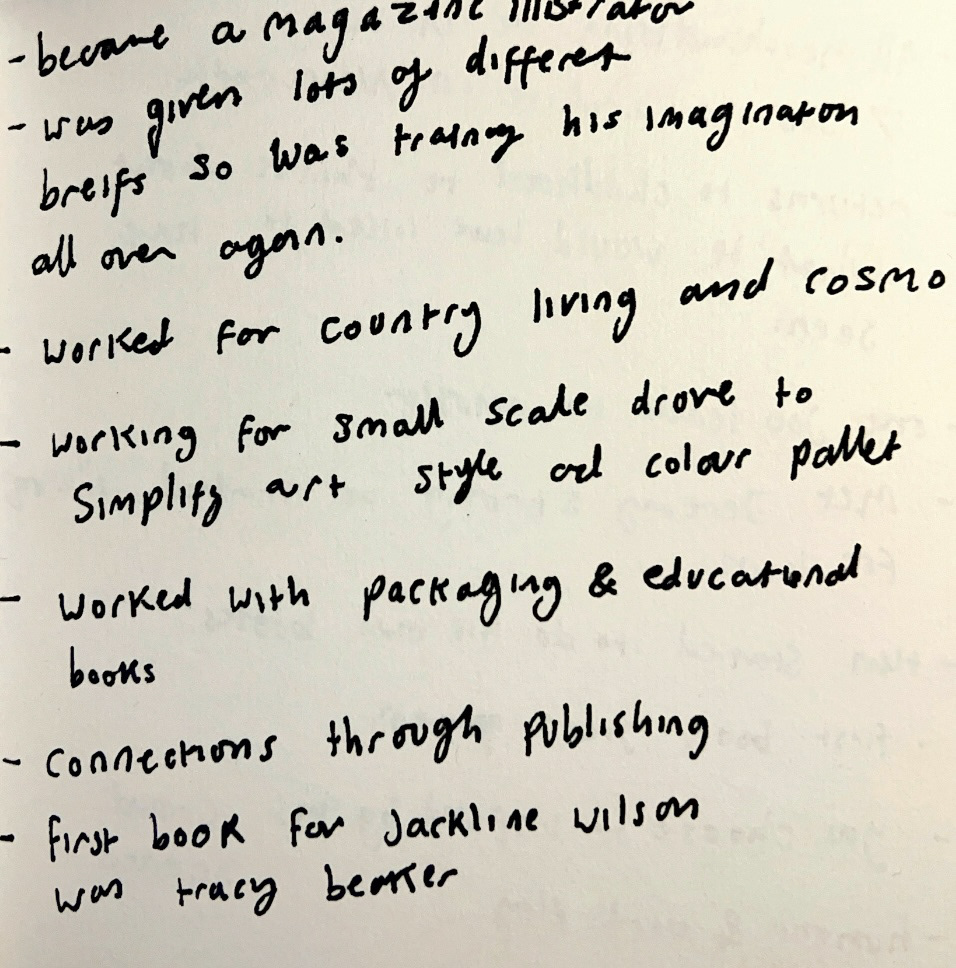 - became a magazine illistrator
- was given lots of differet
breifs so was trainy his imaginaton
all over again.
- worked for country living and cosmo
- working for small scale drove to
simplify art style ad colour pallet
- worked with packaging & educational
books
- connections through publishing
- first book for Jackline wilson
was tracy beaker